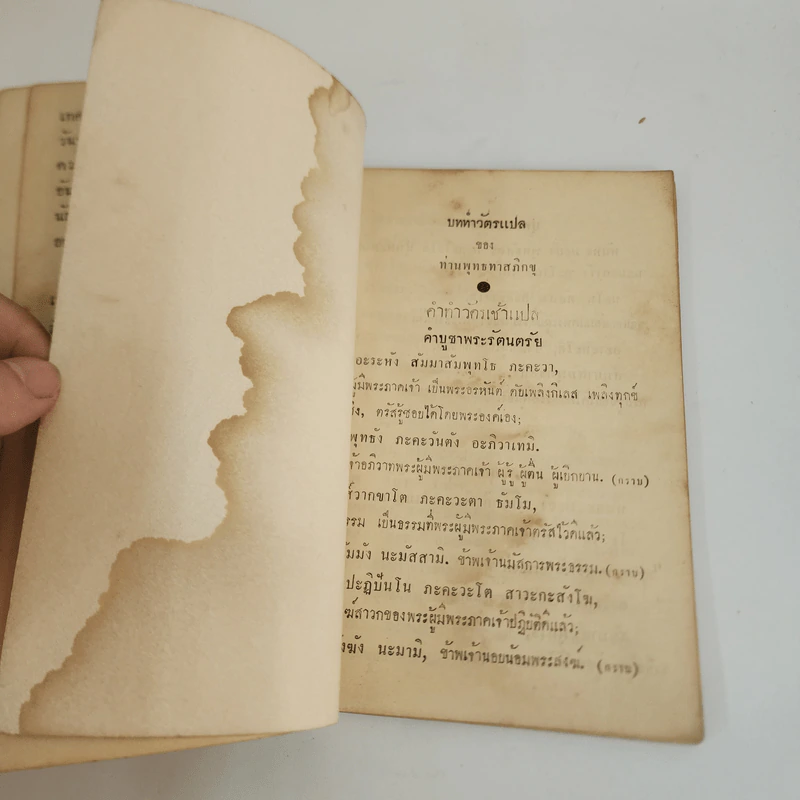 เทศ
วัน
คว
นั
บททำวัตรแปล
ของ
ท่านพุทธทาสภิกขุ
คำทำวัตรเช้าแปล
คำบูชาพระรัตนตรัย
อะระหัง สัมมาสัมพุทโธ ภะคะวา,
ผู้มีพระภาคเจ้า เป็นพระอรหันต์ ดับเพลิงกิเลส เพลิงทุกข์
ตรัสรู้ชอบได้โดยพระองค์เอง;
พุทธัง ภะคะวันตัง อะภิวาเทมิ.
เจ้าอภิวาทพระผู้มีพระภาคเจ้า ผู้รู้ ผู้ตื่น ผู้เบิกบาน. (กราบ)
ส๎วากขาโต ภะคะวะตา ธัมโม,
รรม เป็นธรรมที่พระผู้มีพระภาคเจ้าตรัสไว้ดีแล้ว;
ัมมัง นะมัสสามิ. ข้าพเจ้านมัสการพระธรรม. (กราบ)
ปะฏิปันโน ภะคะวะโต สาวะกะสังโฆ,
ฆ์สาวกของพระผู้มีพระภาคเจ้าปฏิบัติดีแล้ว;
ังฆัง นะมามิ, ข้าพเจ้านอบน้อมพระสงฆ์. (กราบ)